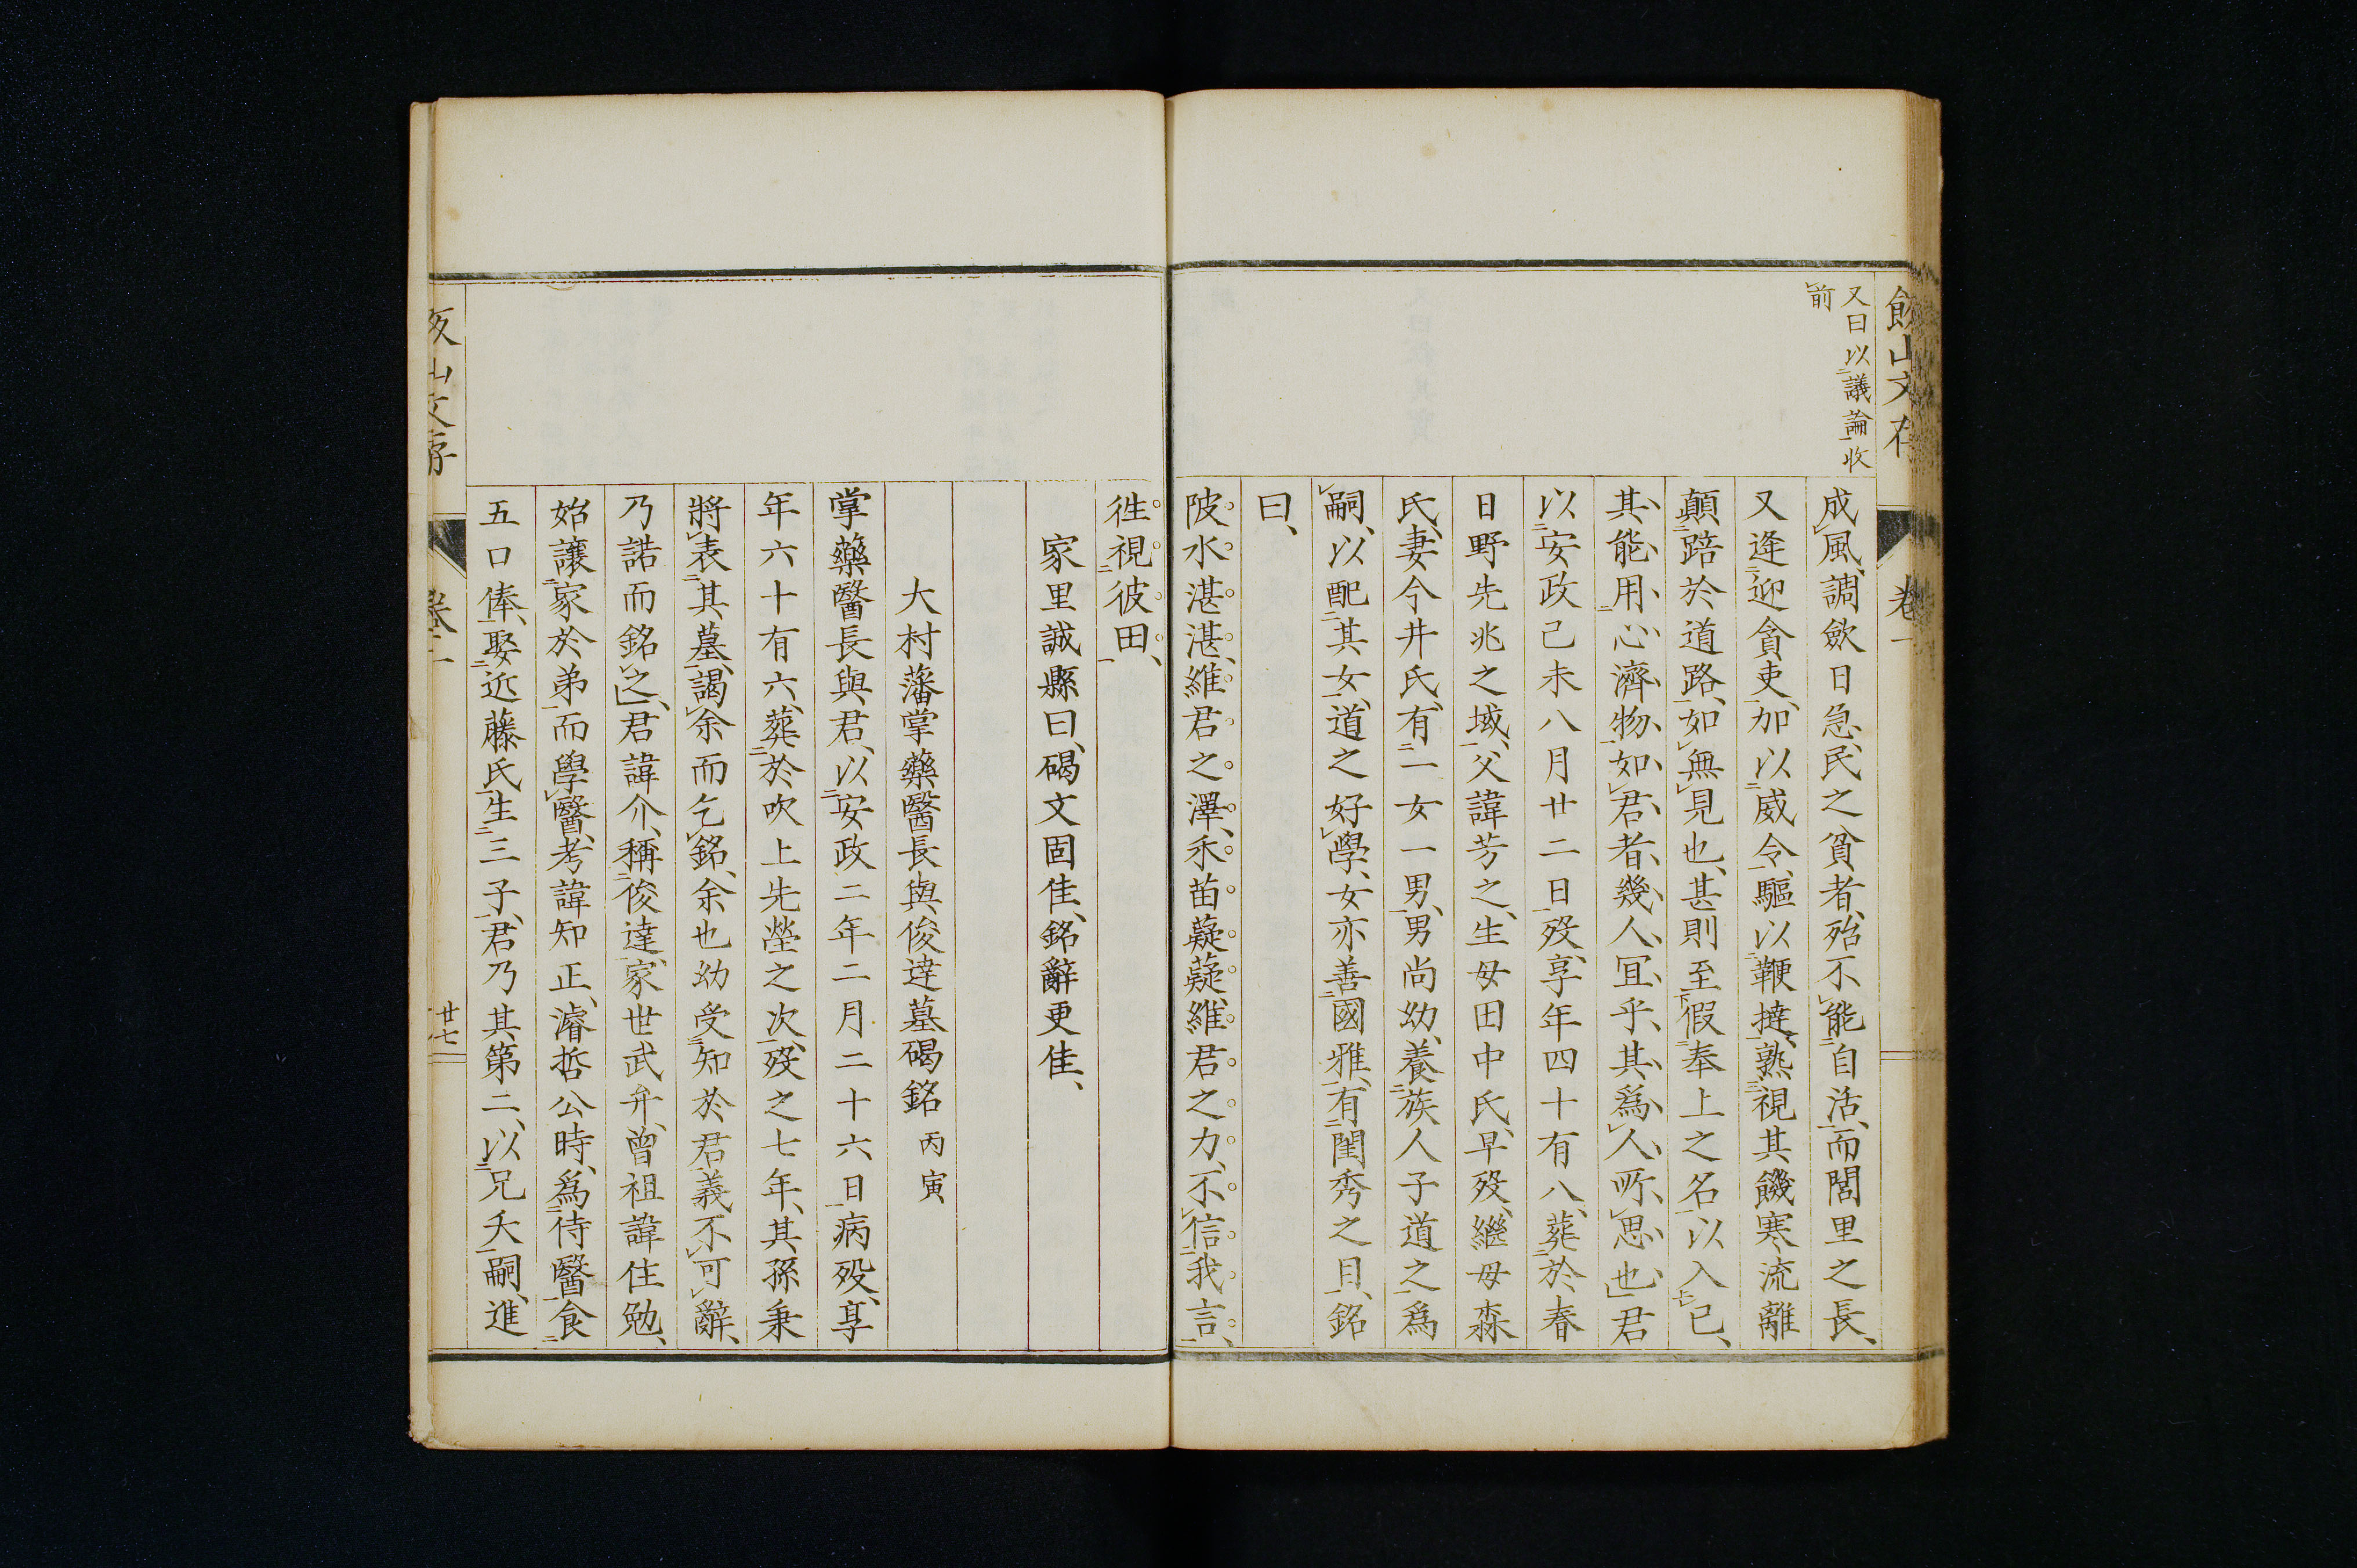 飯山文存
卷一
又曰以議論收
前
成風、調斂日急、民之貧者、殆不能自活、而閭里之長、
又逢迎貪吏、加以威令、驅以鞭撻、熟視其饑寒流離
顛踣於道路、如無見也、甚則至假奉上之名、以入己、
其能用心濟物如君者、幾人、冝乎其爲人所思也、君
以安政己未八月廿二日歿、享年四十有八、葬於春
日野先兆之域、父諱芳之、生母田中氏、早歿、繼母森
氏、妻今井氏、有一女一男、男尚幼、養族人子道之爲
嗣、以配其女、道之好學、女亦善國雅、有閨秀之目、銘
曰、
陂水湛湛、維君之澤、禾苗薿薿、維君之力、不信我言、
徃視彼田、
家里誠縣曰、碣文固佳、銘辭更佳、
大村藩掌藥醫長與俊達墓碣銘 丙寅
掌藥醫長與君、以安政二年二月二十六日病歿、享
年六十有六、葬於吹上先塋之次、歿之七年、其孫秉
將表其墓、謁余而乞銘、余也幼受知於君義不可辭、
乃諾而銘之、君諱介、稱俊達、家世武弁、曾祖諱住勉、
始讓家於弟、而學醫、考諱知正、濬哲公時、爲侍醫、食
五口俸、娶近藤氏、生三子、君乃其第二、以兄夭嗣、進
飯山文存
卷一
廿七